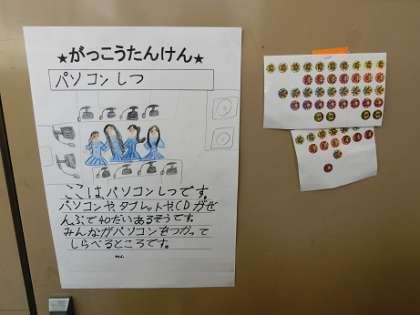 ★がっこうたんけん★
パソコンしつ
ここはパソコンしつです。
パソコンや、タブレットや、CDがぜ
んぶで40だいあるそうです。
みんながパソコンをつかって
しらべるところです。